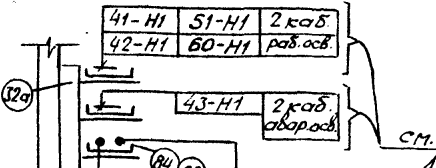 41-Н1 51-Н1 2 каб.
42-Н1 60-Н1 раб.осв.
32а
43-Н1 2 каб.
авар.осв.
см.
84